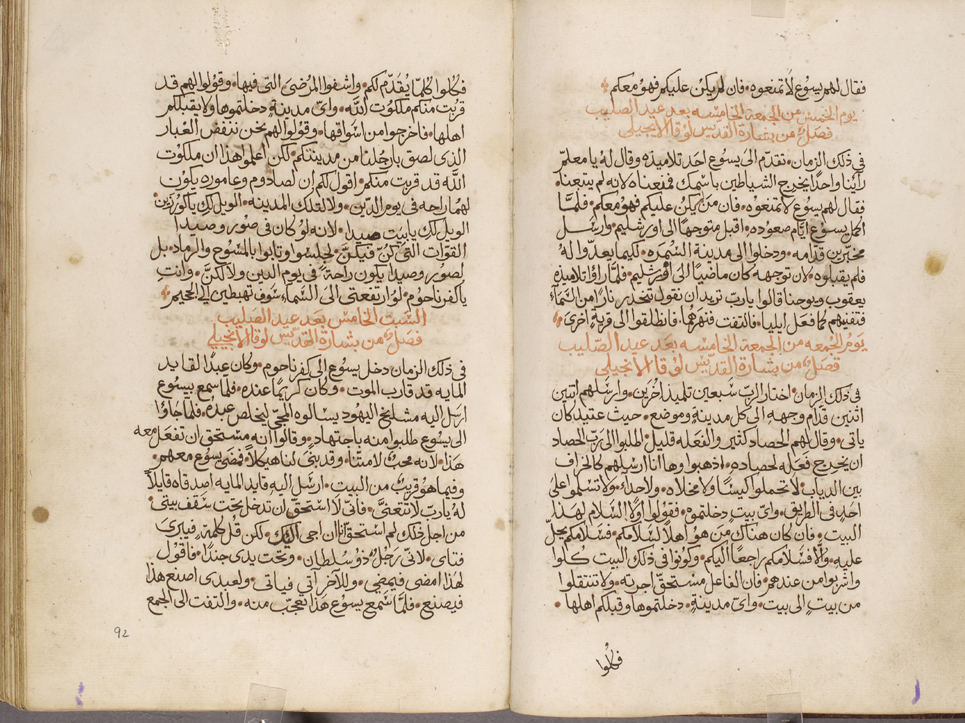 فقال لهم يسوع لا تمنعوه • فان لم يكن عليكم فهو معكم
يوم الخميس من الجمعة الخامسه بعد عيد الصليب
فصل من بشارة القديس لوقا الانجيلي
في ذلك الزمان • تقدّم الى يسوع احد تلاميذه وقال له يا معلم
رأينا واحدًا يخرج الشياطين باسمك فمنعناه لانه لم يتبعنا •
فقال لهم يسوع لا تمنعوه • فان من لم يكن عليكم فهو معكم • فلمّا
اكمل يسوع ايام صعوده • اقبل متوجهًا الى اورشليم • وارسل
مخبرين قدامه • ودخلوا الى مدينة السَمَره • كيما يعدّوا له
فلم يقبلوه • لان توجهه كان ماضيًا الى اورشليم • فلمّا راوا تلاميذه
يعقوب ويوحنا قالوا يا رب تريد ان نقول تنحدر نارًا من السَمَاءِ
فتفنيهم كما فعل ايليا • فالتفت فنهرهما • فانطلقوا الى قريةٍ اخرى
يوم الجمعه من الجمعة الخامسه بعد عيد الصّليب
فصل من بشارة القديس لوقا الانجيلي
في ذلك الزمان • اختار الربّ سَبعين تلميذ اخرين • وارسلهم اثنين
اثنين قدّام وجهه الى كل مدينةٍ وموضع • حيث عتيد كان
ياتي • وقال لهم الحصاد كثير والفَعَله قليل • اطلبوا الى ربّ الحصاد
ان يخرج فعله لحصاده • اذهبوا وها انا ارسلهم كالخراف
بين الدياب • لا تحملوا كيسًا ولا مخلاه • ولا حذاء • ولا تسلموا على
احدٍ في الطريق • واىّ بيتٍ دخلتموه • فقولوا اولًا السلام لهذا
البيت • فان كان هناك من هو اهلًا لسلامكم • فسلامكم يحلّ
عليه • والّا فسلامكم راجعًا اليكم • وكونوا في ذلك البيت كلوا
واشربوا من عندهم • فان الفاعل مستحق اجرته • ولا تنتقلوا
من بيتٍ الى بيت • واىّ مدينةٍ • دخلتموها وقبلكم اهلها •
فكلوا
فكلوا كلمّا يُقدّم لكم • واشفوا المرضى التى فيها • وقولوا لهم قد
قربت منكم ملكوت الله • واىّ مدينةٍ دخلتموها ولا يقبلكم
اهلها • فاخرجوا من اسواقها • وقولوا لهم نحن ننفض الغبار
الذى لصق بارجلنا من مدينتكم • لكن اعلموا هذا ان ملكوت
الله قد قربت منكم • اقول لكم ان لصادوم وعاموره يكون
لهما راحه في يوم الدّين • ولا لتلك المدينه • الويل لكِ يا كورزين
الويل لك يا بيت صيدا • لانه لو كان في صور وصيدا
القوات التى كنّ فيكنّ • لجلسوا وتابوا بالمسُوح والرماد • بل
لصور وصيدا يكون راحة في يوم الدين ولا لكنّ • وانت
يا كفرناحوم • لو ارتفعتى الى السَماءِ سَوف تهبطين الى الجحيم
السَبت الخامس بعد عيد الصليب
فصل من بشارة القديس لوقا الانجيلي
في ذلك الزمان دخل يسوع الى كفرناحوم • وكان عبدًا لقايد
المايه قد قارب الموت • وكان كريمًا عنده • فلما سمع بيسوع
ارسل اليه مشايخ اليهود يسالوه المجي ليخلص عبده • فلما جاؤا
الى يسوع طلبوا منه باجتهاد • وقالوا انه مستحق ان تفعل معه
هذا • لانه محبّ لامتنا • وقد بنى لنا هيكلًا • فمضى يسوع معهم •
وفيما هو قريب من البيت • ارسل اليه قايد المايه اصدقاه قايلًا
له يا رب لا تتعنّى • فأنّى لا استحق ان تدخل تحت سقف بيتى •
من اجل ذلك لم استحق انا ان اجى اليك • لكن قل كلمةٍ فيبرى
فتاى • لانى رجلٌ ذو سُلطان • وتحت يدى جندًا • فاقول
لهذا امضى فيمضي • وللآخر آتى فياتى • ولعبدى اصنع هذا
فيصنع • فلمّا سَمع يسوع هذا تعجب منه • والتفت الى الجمع
92